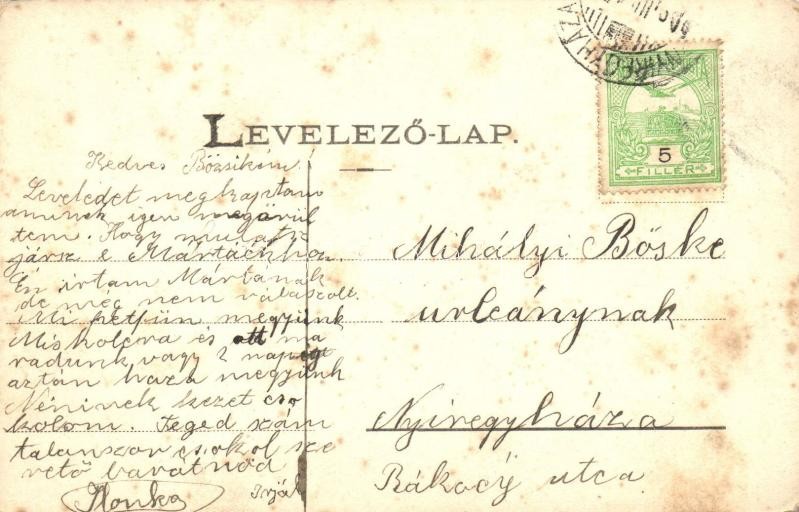 NYIREGYHÁZA
5
FILLER
LEVELEZŐ-LAP.
Kedves Bözsikém!
Leveledet megkaptam
aminek igen megörül
tem. Hogy mulatsz
jársz e Mártáékhoz.
Én irtam Mártának
de még nem válaszolt.
Mi hétfün megyünk
Miskolcra és ott ma
radunk vagy 2 napig
aztán haza megyünk
Néninek kezet csó
kolom. Téged szám
talanszor csokol sze
rető barátnőd
Ilonka
Irjál
Mihályi Böske
urleánynak
Nyiregyháza
Rákoczy utca.